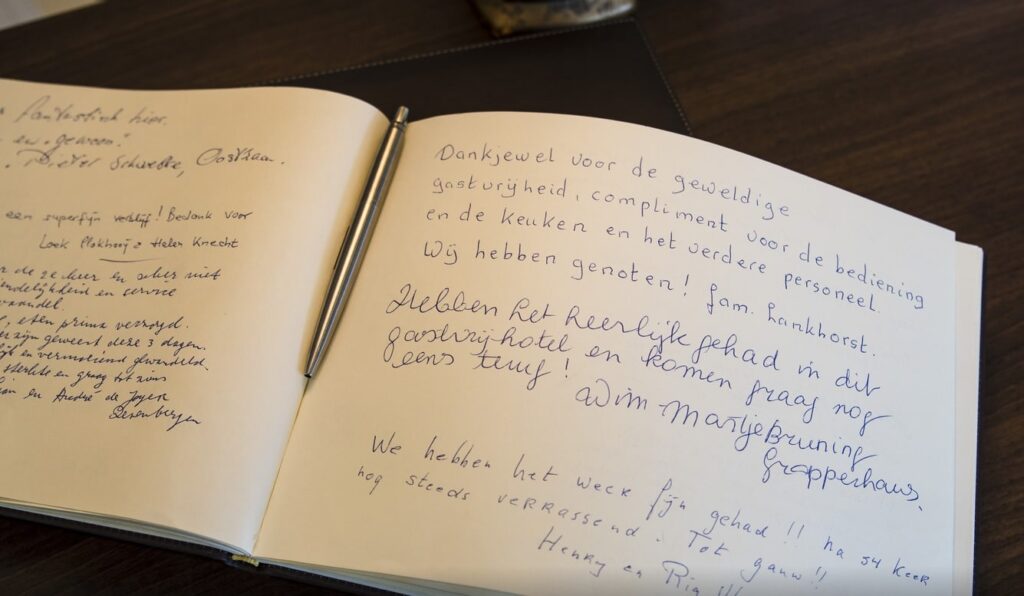 fantastisch hier.
en "gewoon".
Dieter Schwebke, Oostzaan.
een superfijn verblijf! Bedank voor
Loek Plokhooij & Helen Knecht
de 2e keer en zeker niet
endelijkheid en service
eten prima verzorgd.
zijn geweest deze 3 dagen.
en vermoeiend gewandeld.
sterkte en graag tot ziens
en André de Joyer
Dankjewel voor de geweldige
gastvrijheid, compliment voor de bediening
en de keuken en het verdere personeel.
Wij hebben genoten! fam. Lankhorst.
Hebben het heerlijk gehad in dit
gastvrijhotel en komen graag nog
eens terug!
Wim-Martje Bruning
Grapperhaus.
We hebben het weer fijn gehad!! na 54 keer
nog steeds verrassend. Tot gauw!!
Henry en Ria